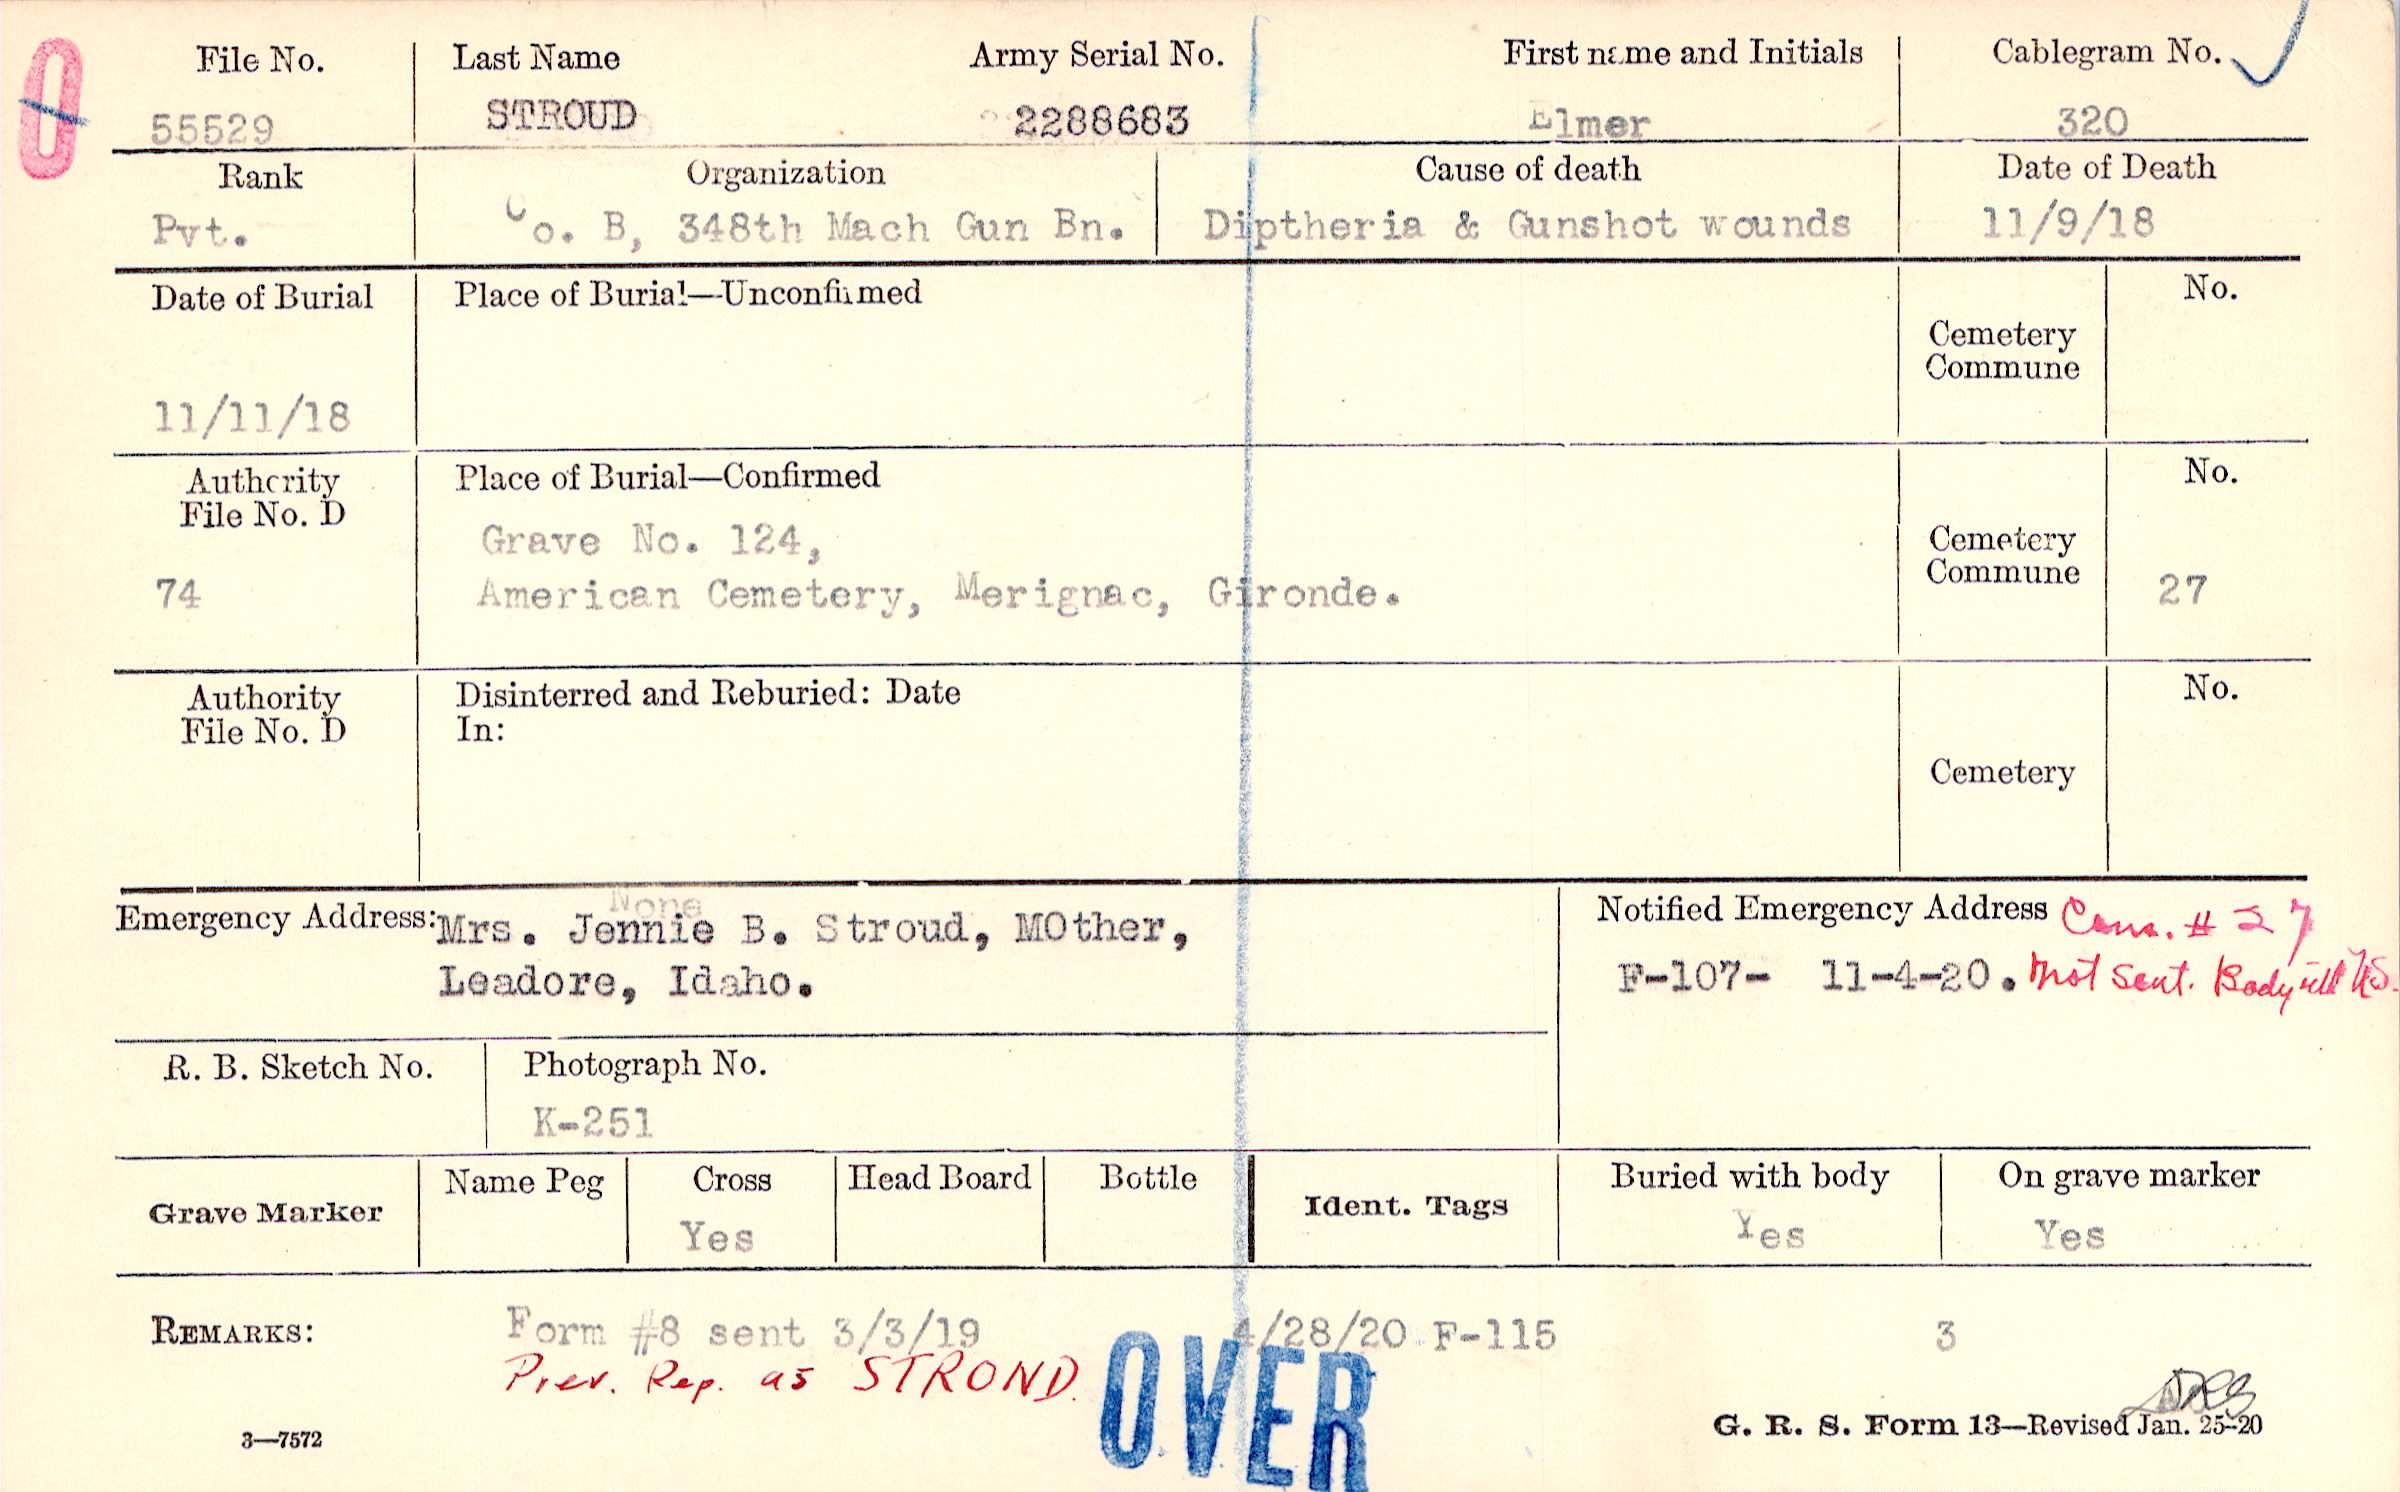 0
File No. Last Name Army Serial No. First name and Initials Cablegram No.
55529 STROUD 2288683 Elmer 320
Rank Organization Cause of death Date of Death
Pvt. Co. B, 348th Mach Gun Bn. Diptheria & Gunshot wounds 11/9/18
Date of Burial Place of Burial—Unconfirmed No.
Cemetery
Commune
11/11/18
Authority Place of Burial—Confirmed No.
File No. D
Grave No. 124, Cemetery
Commune
74 American Cemetery, Merignac, Gironde. 27
Authority Disinterred and Reburied: Date No.
File No. D In:
Cemetery
None
Emergency Address: Mrs. Jennie B. Stroud, MOther, Notified Emergency Address Cem. # 27
Leadore, Idaho. F-107- 11-4-20. not sent. Body U.S.
R. B. Sketch No. Photograph No.
K-251
Grave Marker Name Peg Cross Head Board Bottle Ident. Tags Buried with body On grave marker
Yes Yes Yes
REMARKS: Form #8 sent 3/3/19 4/28/20 F-115 3
Prev. Rep. as STROND.
OVER
3—7572 G. R. S. Form 13—Revised Jan. 25-20